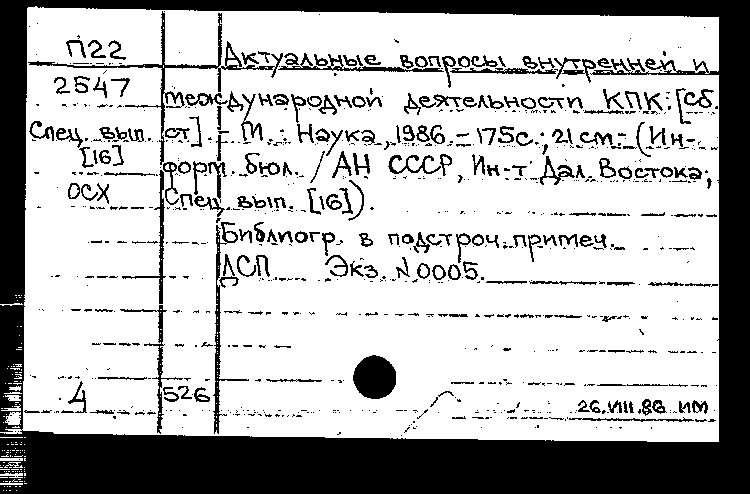 П22 Актуальные вопросы внутренней и
2547 международной деятельности КПК: [Сб.
Спец. вып. ст]. - М.: Наука, 1986. - 175с.; 21 см. - (Ин-
[16] форм. бюл. / АН СССР, Ин-т Дал. Востока;
ОСХ Спец. вып. [16]).
Библиогр. в подстроч. примеч.
ДСП Экз. N 0005.
4 526 26.VIII.86 ИМ